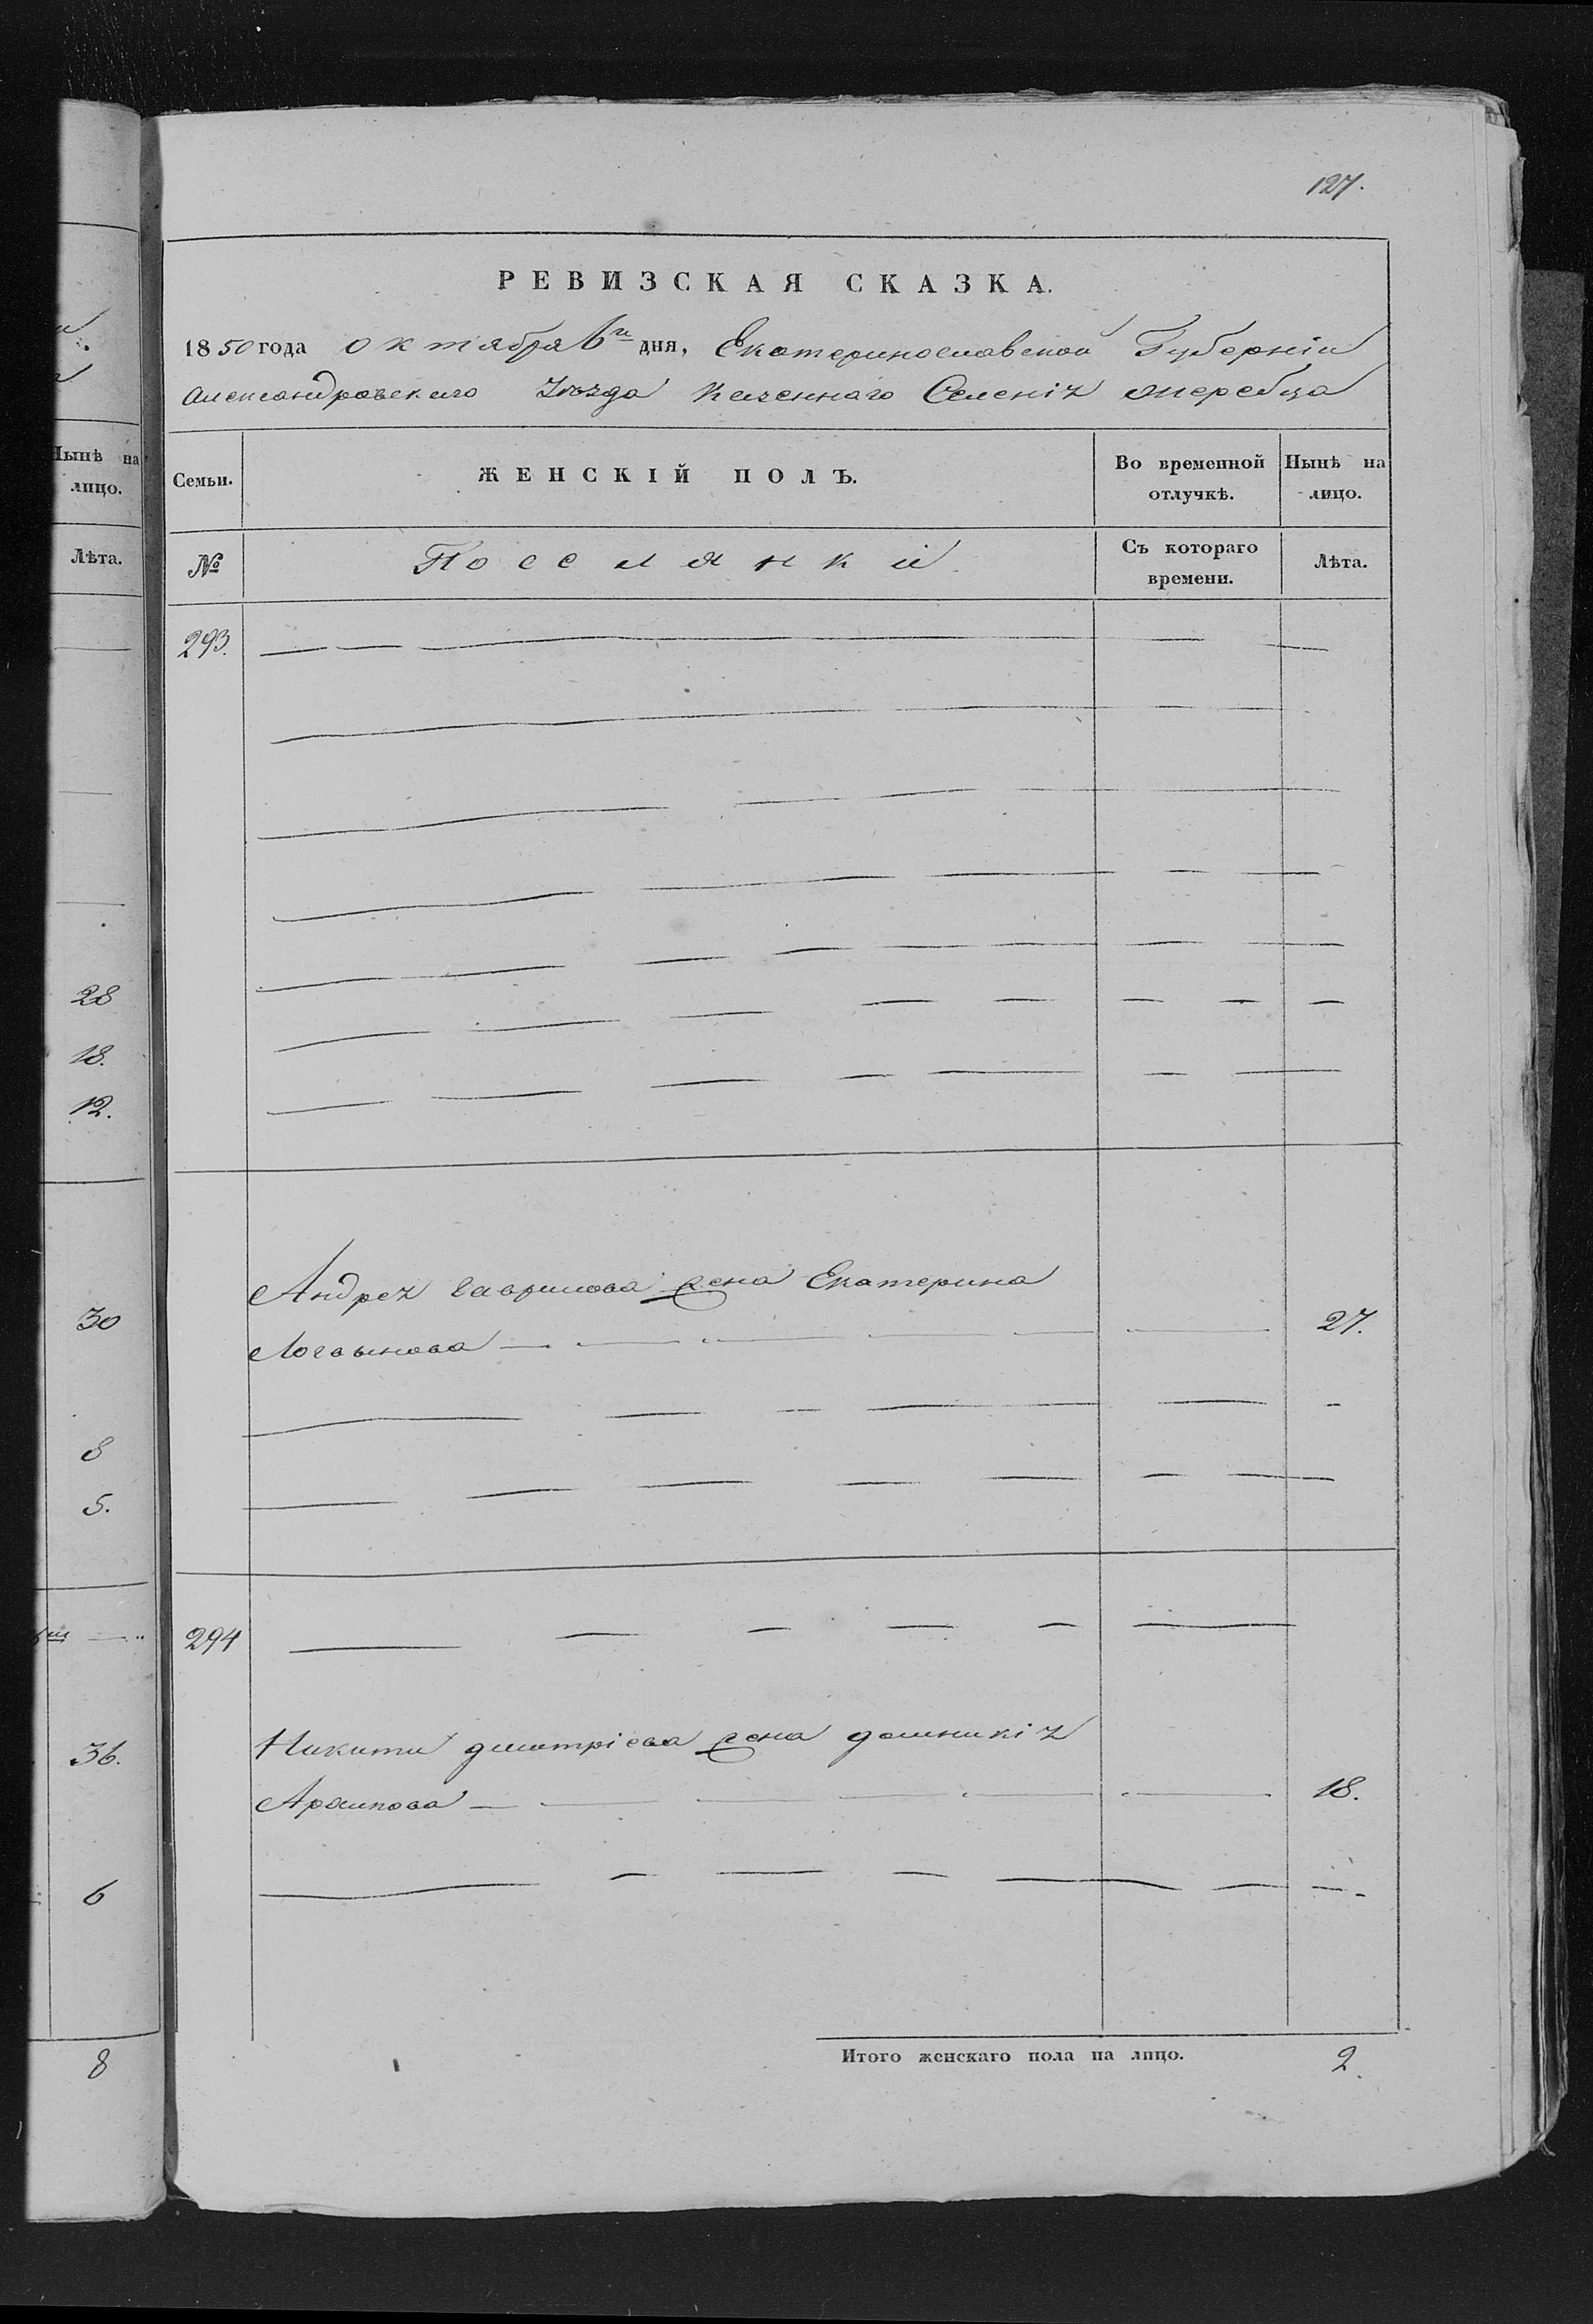 127.
РЕВИЗСКАЯ СКАЗКА.
1850 года октября 6го дня, Екатеринославской Губерніи
Александровскаго Уѣзда Казеннаго Селенія Жеребца
Нынѣ на
лицо.
Лѣта.
28
18.
12.
30
8
5.
36.
6
8
Семьи.
ЖЕНСКІЙ ПОЛЪ.
Во временной
отлучкѣ.
Нынѣ на
лицо.
№
Посселянки
Съ котораго
времени.
Лѣта.
293.
Андрея Гаврилова жена Екатерина
Логвынова 27.
294
Никити Дмитріева жена Домникія
Архипова 18.
Итого женскаго пола на лицо. 2.